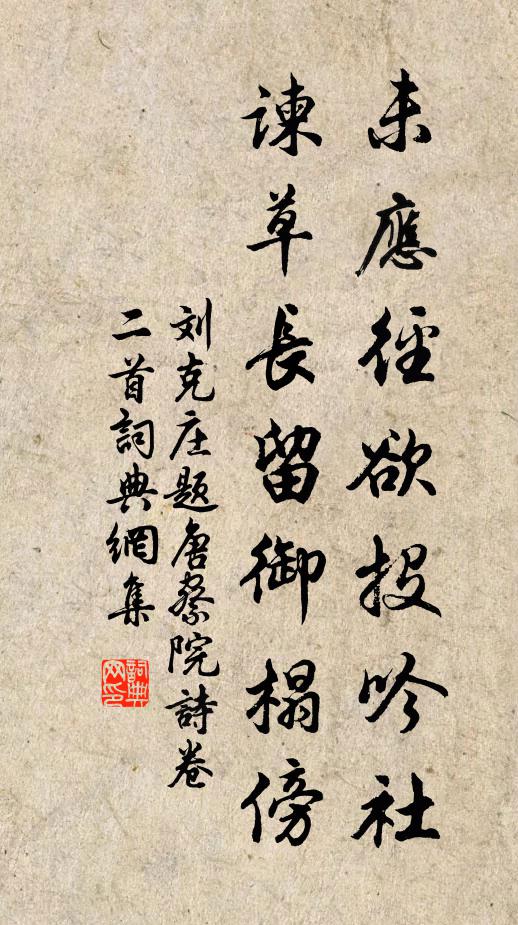 未應徑欲投吟社
諫草長留御榻傍
刘克庄题唐察院詩卷
二首詞典網集
詞典
网印